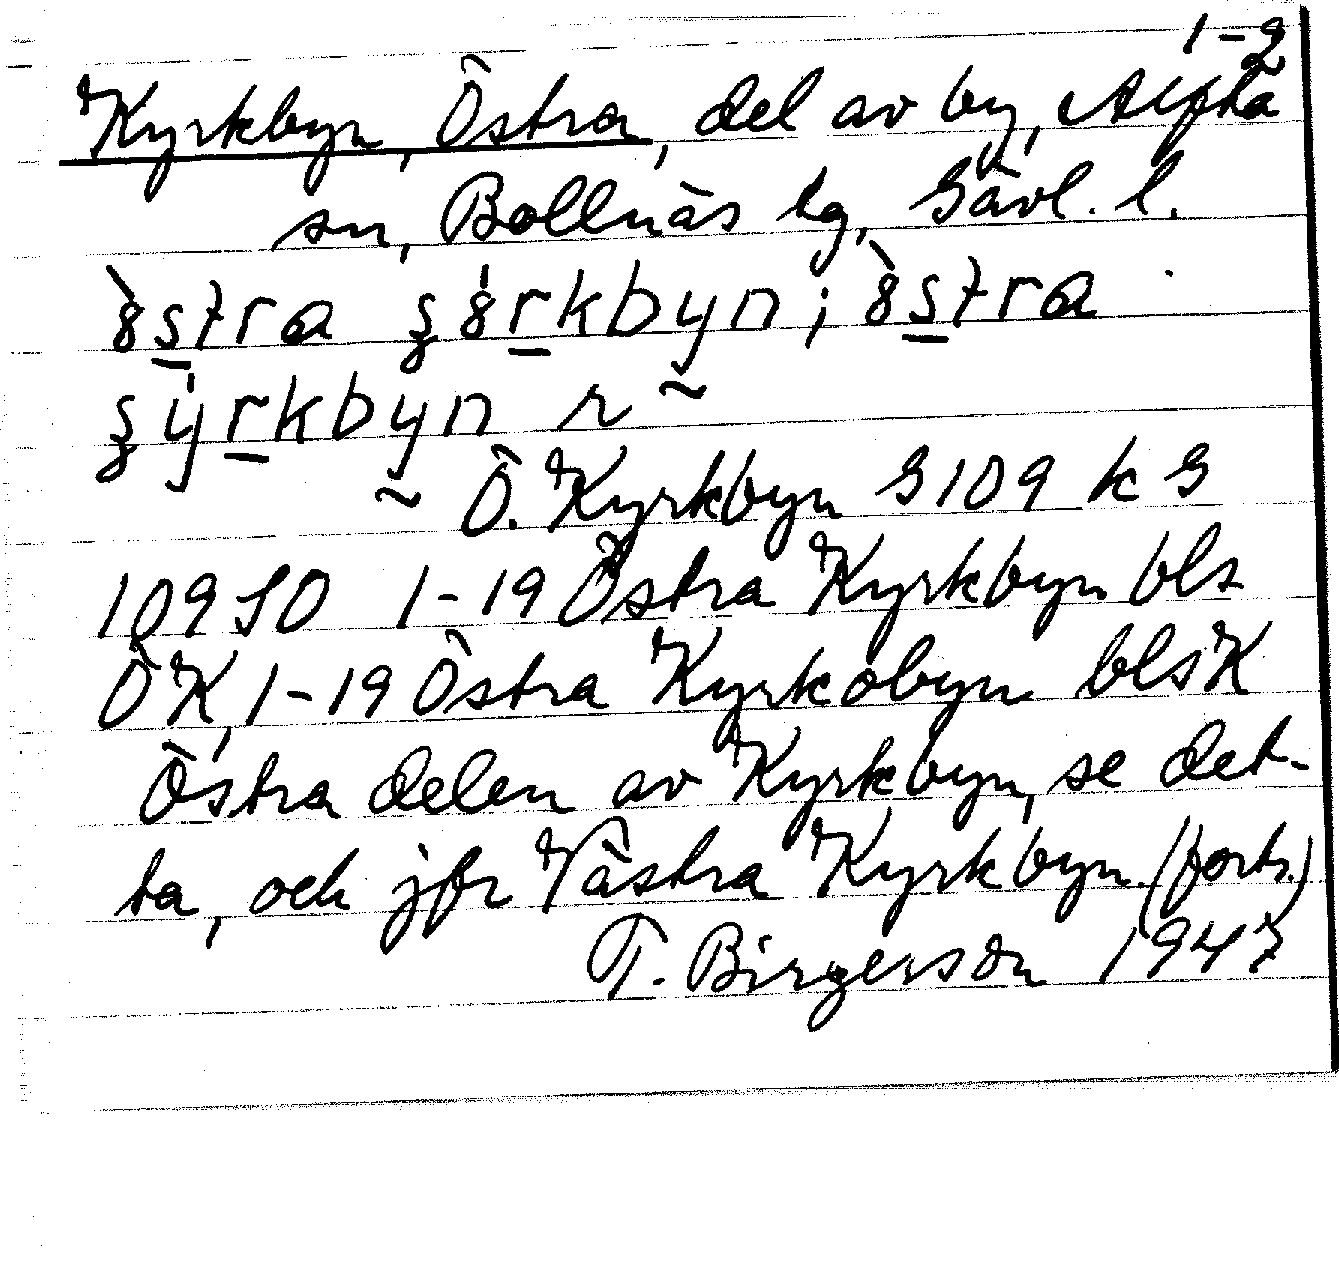 1-2
Kyrkbyn, Östra, del av by, Alfta
sn, Bollnäs tg, Gävl. l.
östra körkbyn; östra
kyrkbyn r
~ Ö. Kyrkbyn G109 k G
109 SO 1-19 Östra Kyrkbyn bls
ÖK, 1-19 Östra Kyrkobyn blsK
Östra delen av Kyrkbyn, se det-
ta, och jfr Västra Kyrkbyn (forts.)
T. Birgerson 1947